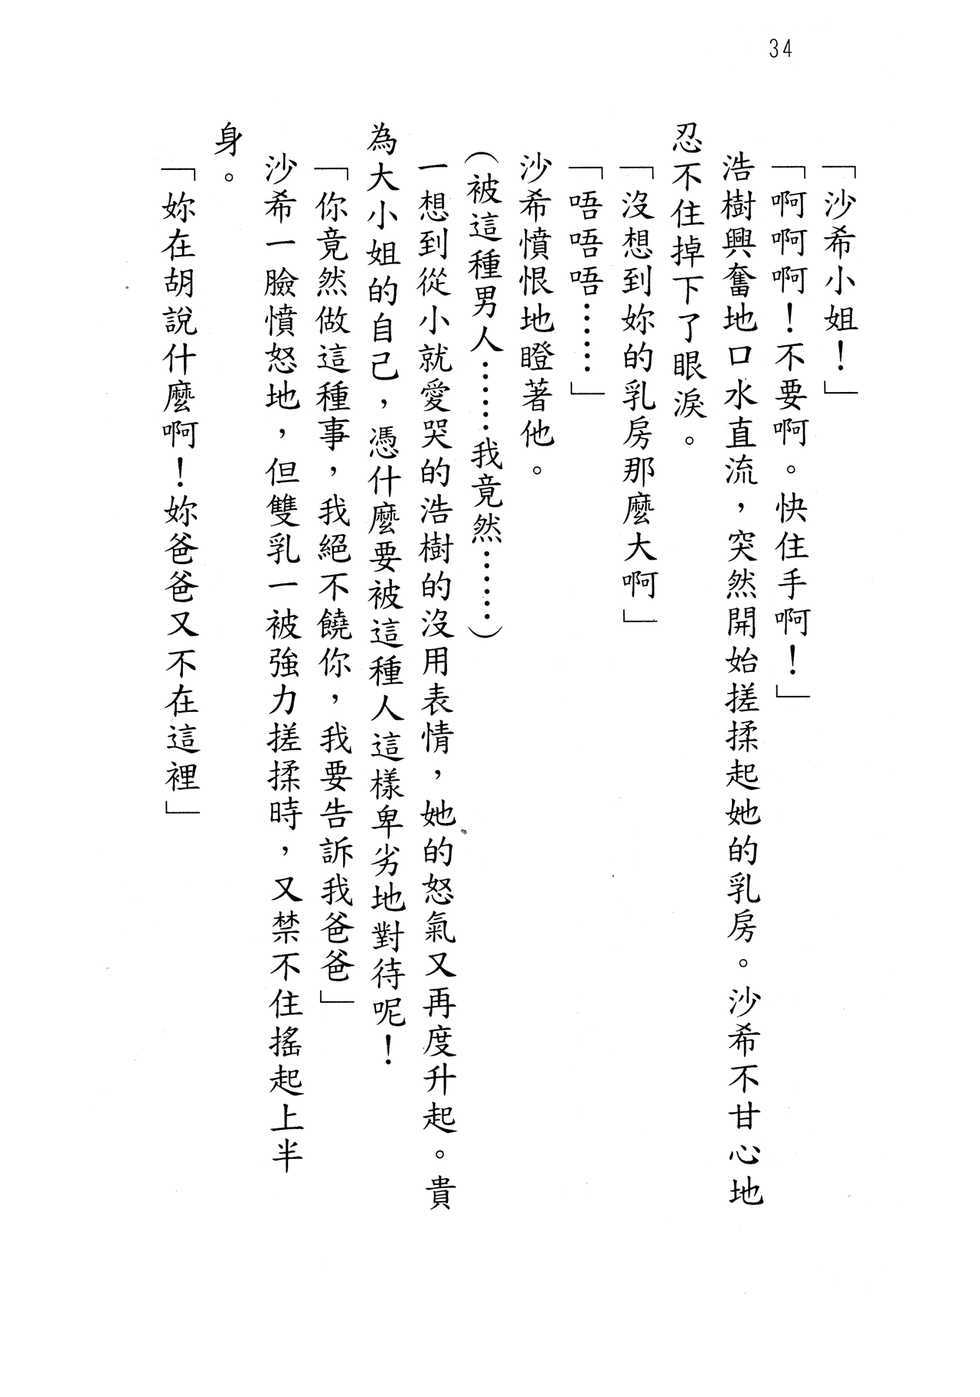 34
「沙希小姐！」
「啊啊啊！不要啊。快住手啊！」
浩樹興奮地口水直流，突然開始搓揉起她的乳房。沙希不甘心地
忍不住掉下了眼淚。
「沒想到妳的乳房那麼大啊」
「唔唔唔……」
沙希憤恨地瞪著他。
（被這種男人……我竟然……）
一想到從小就愛哭的浩樹的沒用表情，她的怒氣又再度升起。貴
為大小姐的自己，憑什麼要被這種人這樣卑劣地對待呢！
「你竟然做這種事，我絕不饒你，我要告訴我爸爸」
沙希一臉憤怒地，但雙乳一被強力搓揉時，又禁不住搖起上半
身。
「妳在胡說什麼啊！妳爸爸又不在這裡」